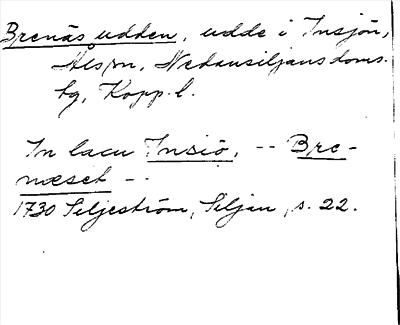 Brenäsudden, udde i Insjön,
Åls sn, Nedansiljans doms.
hg, Kopp. l.
In lacu Insiö, -- Bre-
næset --.
1730 Siljeström, Siljan, s. 22.